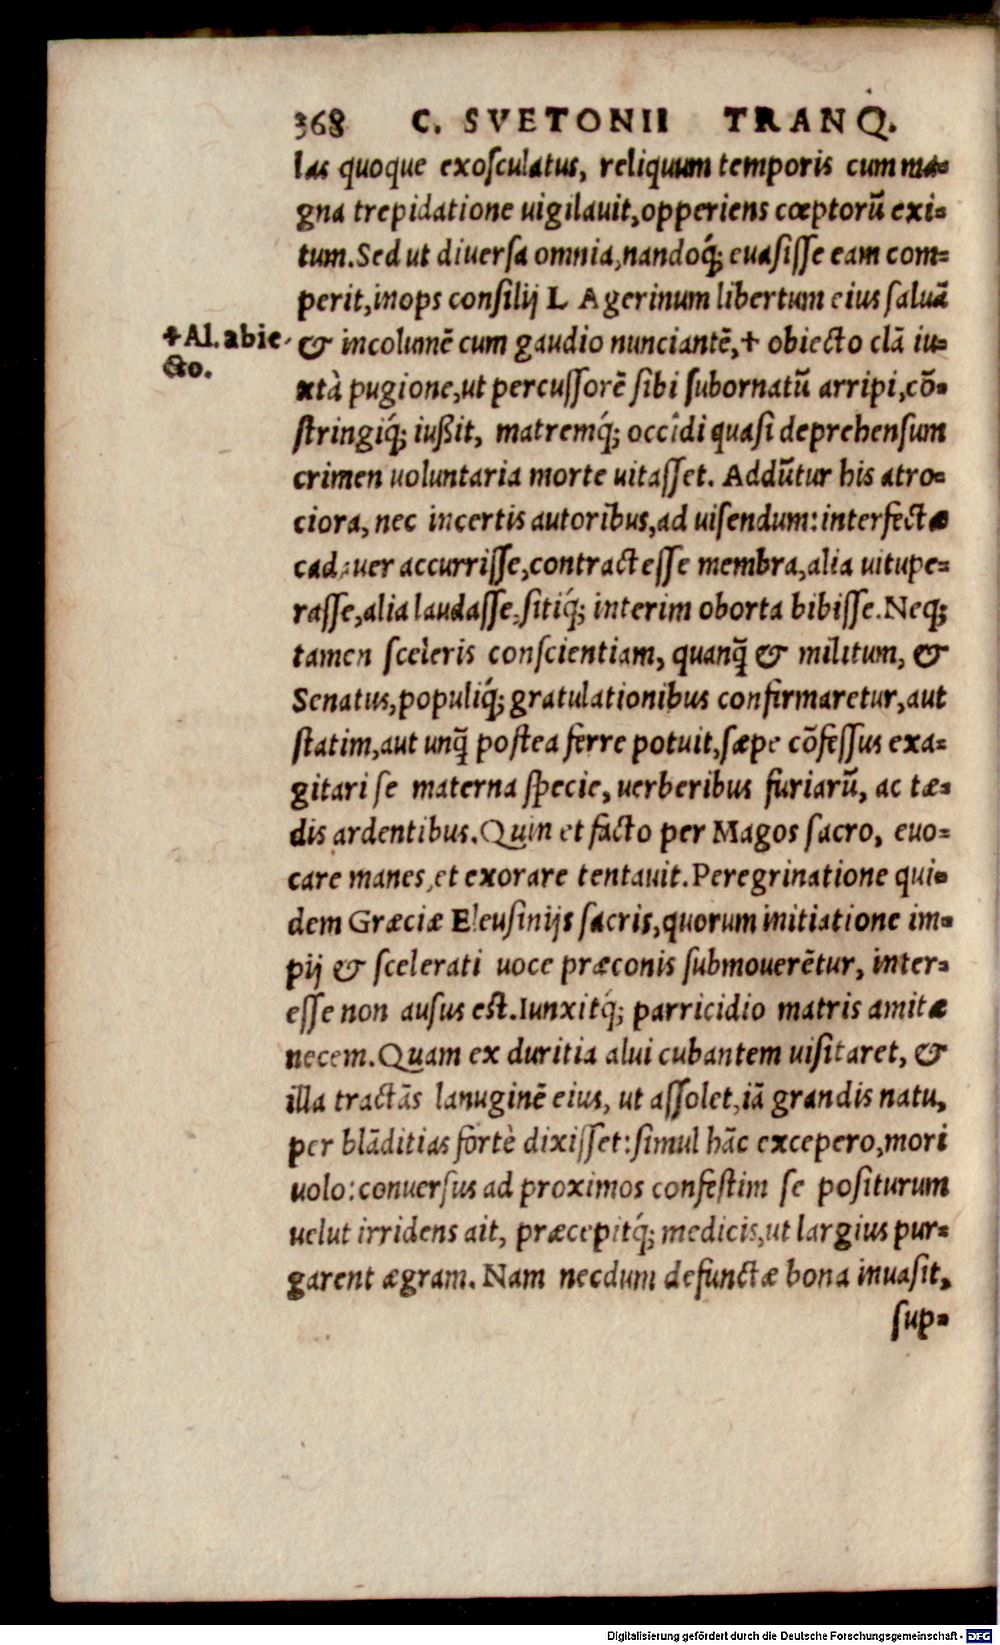 368 C. SVETONII TRANQ.
las quoque exosculatus, reliquum temporis cum ma-
gna trepidatione uigilauit, opperiens cœptorū exi-
tum. Sed ut diuersa omnia, nandoq́; euasisse eam com-
perit, inops consilij L Agerinum libertum eius saluā
✝Al. abie-
cto.
& incolumē cum gaudio nunciantē, ✝ obiecto clā iu-
xtà pugione, ut percussorē sibi subornatū arripi, cō-
stringiq́; iußit, matremq́; occidi quasi deprehensum
crimen uoluntaria morte uitasset. Addūtur his atro-
ciora, nec incertis autoribus, ad uisendum: interfectæ
cadauer accurrisse, contractesse membra, alia uitupe-
rasse, alia laudasse, sitiq́; interim oborta bibisse. Neq;
tamen sceleris conscientiam, quanq̄ & militum, &
Senatus, populiq́; gratulationibus confirmaretur, aut
statim, aut unq̄ postea ferre potuit, sæpe cōfessus exa-
gitari se materna specie, uerberibus furiarū, ac tæ-
dis ardentibus. Quin et facto per Magos sacro, euo-
care manes, et exorare tentauit. Peregrinatione qui-
dem Græciæ Eleusinijs sacris, quorum initiatione im-
pij & scelerati uoce præconis submouerētur, inter-
esse non ausus est. Iunxitq́; parricidio matris amitæ
necem. Quam ex duritia alui cubantem uisitaret, &
illa tractās lanuginē eius, ut assolet, iā grandis natu,
per blāditias fortè dixisset: simul hāc excepero, mori
uolo: conuersus ad proximos confestim se positurum
uelut irridens ait, præcepitq́; medicis, ut largius pur-
garent ægram. Nam necdum defunctæ bona inuasit,
sup-
Digitalisierung gefördert durch die Deutsche Forschungsgemeinschaft - DFG